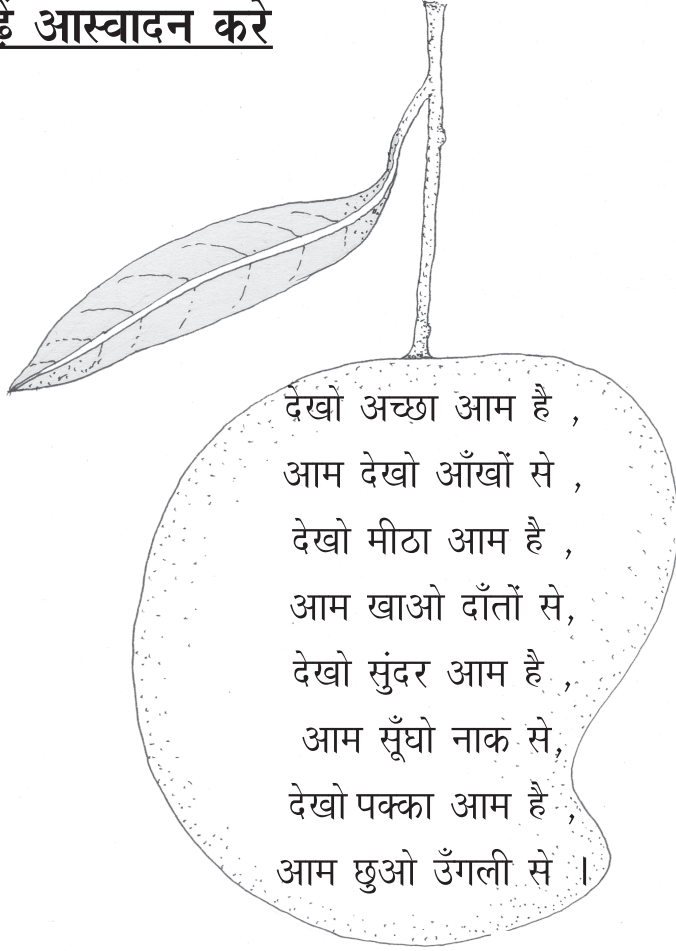 आस्वादन करे
देखो अच्छा आम है ,
आम देखो आँखों से ,
देखो मीठा आम है ,
आम खाओ दाँतों से,
देखो सुंदर आम है ,
आम सूँघो नाक से,
देखो पक्का आम है ,
आम छुओ उँगली से ।